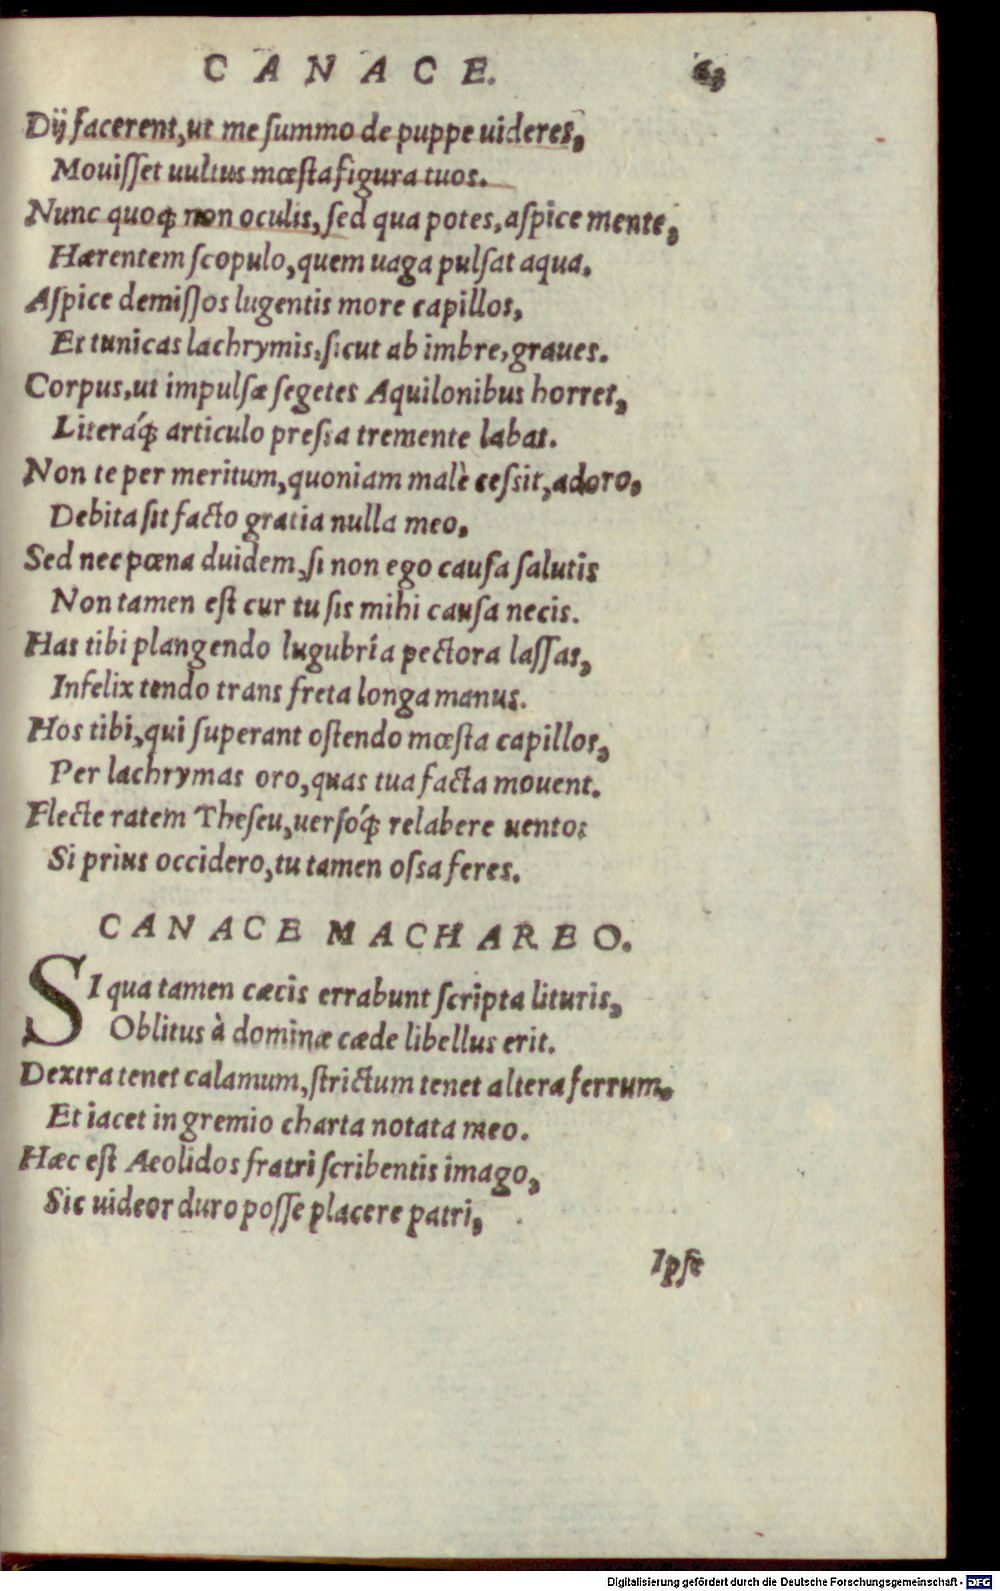 CANACE. 63
Dĳ facerent, ut me ſummo de puppe uideres,
Mouiſſet uultus mœſta figura tuos.
Nunc quoq; non oculis, ſed qua potes, aſpice mente,
Hærentem ſcopulo, quem uaga pulſat aqua.
Aſpice demiſſos lugentis more capillos,
Et tunicas lachrymis, ſicut ab imbre, graues.
Corpus, ut impulſæ ſegetes Aquilonibus horret,
Literáq; articulo preſſa tremente labat.
Non te per meritum, quoniam malè ceſsit, adoro,
Debita ſit facto gratia nulla meo.
Sed nec pœna duidem, ſi non ego cauſa ſalutis
Non tamen eſt cur tu ſis mihi cauſa necis.
Has tibi plangendo lugubría pectora laſſas,
Infelix tendo trans freta longa manus.
Hos tibi, qui ſuperant oſtendo mœſta capillos,
Per lachrymas oro, quas tua facta mouent.
Flecte ratem Theſeu, uerſóq; relabere uento:
Si prius occidero, tu tamen oſſa feres.
CANACE MACHAREO.
SI qua tamen cæcis errabunt ſcripta lituris,
Oblitus à dominæ cæde libellus erit.
Dextra tenet calamum, ſtrictum tenet altera ferrum.
Et iacet in gremio charta notata meo.
Hæc eſt Aeolidos fratri ſcribentis imago,
Sic uideor duro poſſe placere patri,
Ipſe
Digitalisierung gefördert durch die Deutsche Forschungsgemeinschaft - DFG